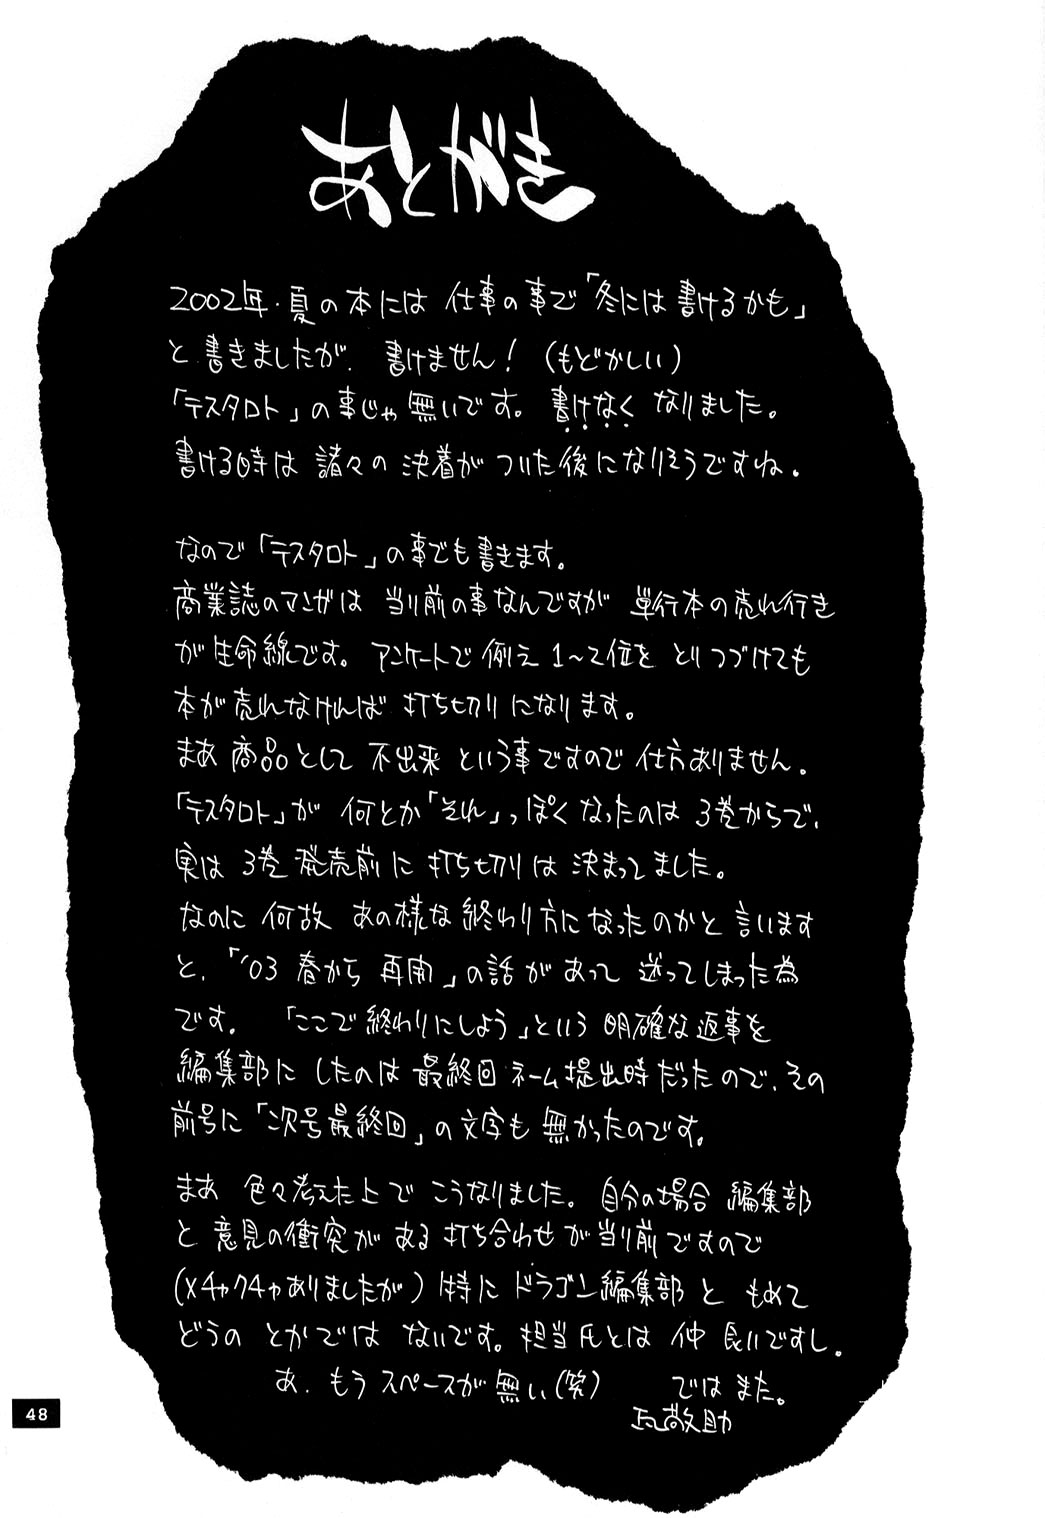 あとがき
2002年・夏の本には 仕事の事で「冬には書けるかも」
と書きましたが、書けません！（もどかしい）
「テスタロト」の事じゃ無いです。書けなく なりました。
書ける時は 諸々の 決着が ついた後になりそうですね。
なので「テスタロト」の事でも書きます。
商業誌のマンガは 当り前の事なんですが 単行本の売れ行き
が生命線です。アンケートで 例え 1〜2位を とりつづけても
本が売れなければ 打ち切りになります。
まあ 商品として 不出来 という事ですので 仕方ありません。
「テスタロト」が 何とか「それ」っぽくなったのは 3巻からで、
実は 3巻発売前に 打ち切りは 決まってました。
なのに 何故 あの様な終わり方になったのかと 言います
と、「'03 春から 再開」の話があって 迷ってしまった為
です。「ここで終わりにしよう」という 明確な返事を
編集部に したのは 最終回 ネーム提出時だったので、その
前号に「次号最終回」の文字も 無かったのです。
まあ 色々考えた上で こうなりました。自分の場合 編集部
と 意見の衝突が ある 打ち合わせが当り前ですので
(メチャクチャありましたが）特に ドラゴン編集部と もめて
どうの とかでは ないです。担当氏とは 仲 良いですし。
あ、もう スペースが 無い(笑) では また。
敬助
48